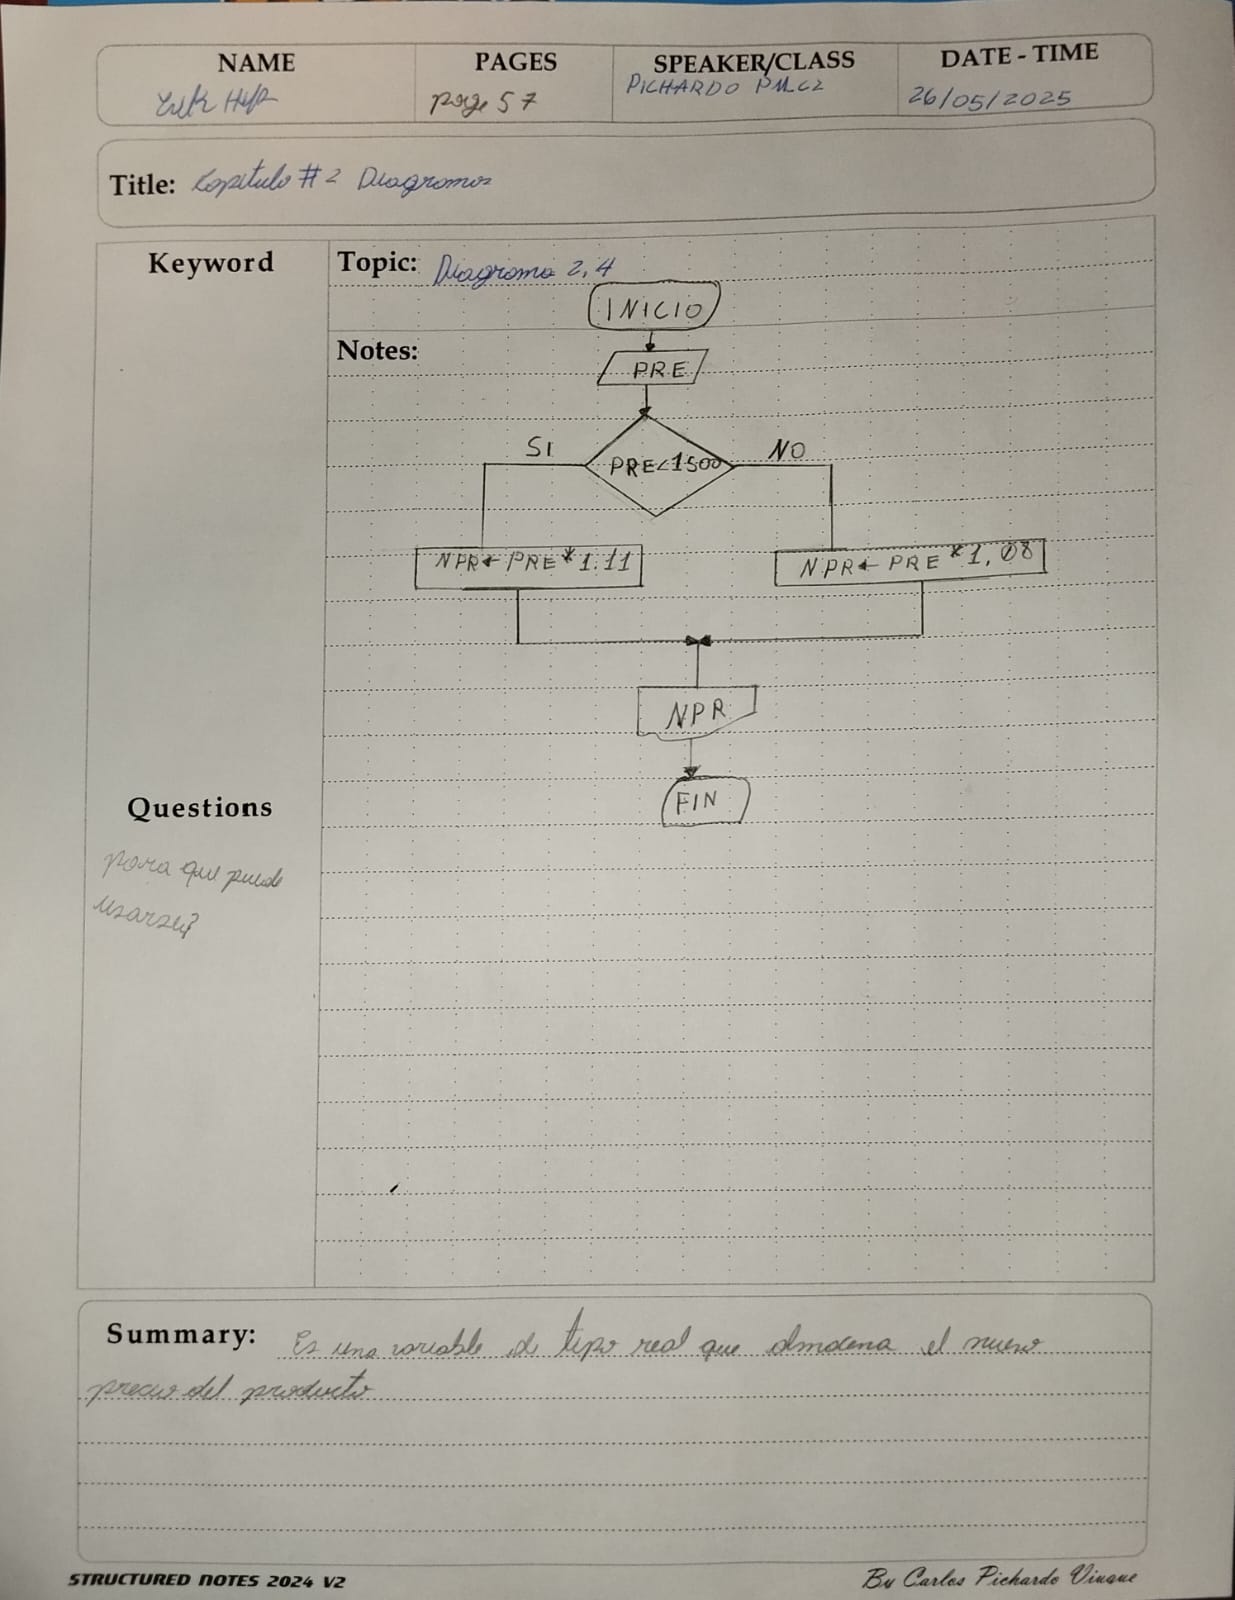 NAME PAGES SPEAKER/CLASS DATE - TIME
page 57 PICHARDO 26/05/2025
Title: Capitulo #2 Diagramas
Keyword
Topic: Diagrama 2,4
INICIO
Notes:
PRE
SI PRE<1500 NO
NPR← PRE * 1.11 NPR← PRE * 1,08
NPR
FIN
Questions
para que puede
usarse?
Summary: Es una variable de tipo real que almacena el nuevo
precio del producto
STRUCTURED NOTES 2024 V2 By Carlos Pichardo Viuque